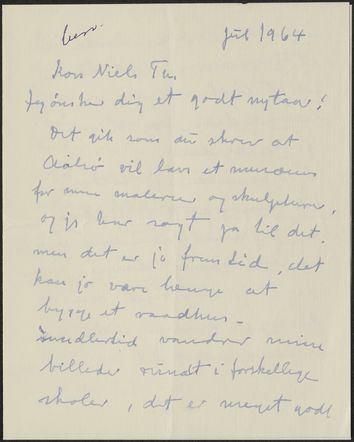 besv.
Jul 1964
Kære Niels Th.
Jeg ønsker dig et godt nytaar!
Det gik som du skrev at
vil lave et museum
for mine malerier og skulpturer,
og jeg har sagt ja til det.
men det er jo fremtid, det
kan jo vare længe at
bygge et raadhus.
Imidlertid vandrer mine
billeder rundt i forskellige
skoler, det er meget godt